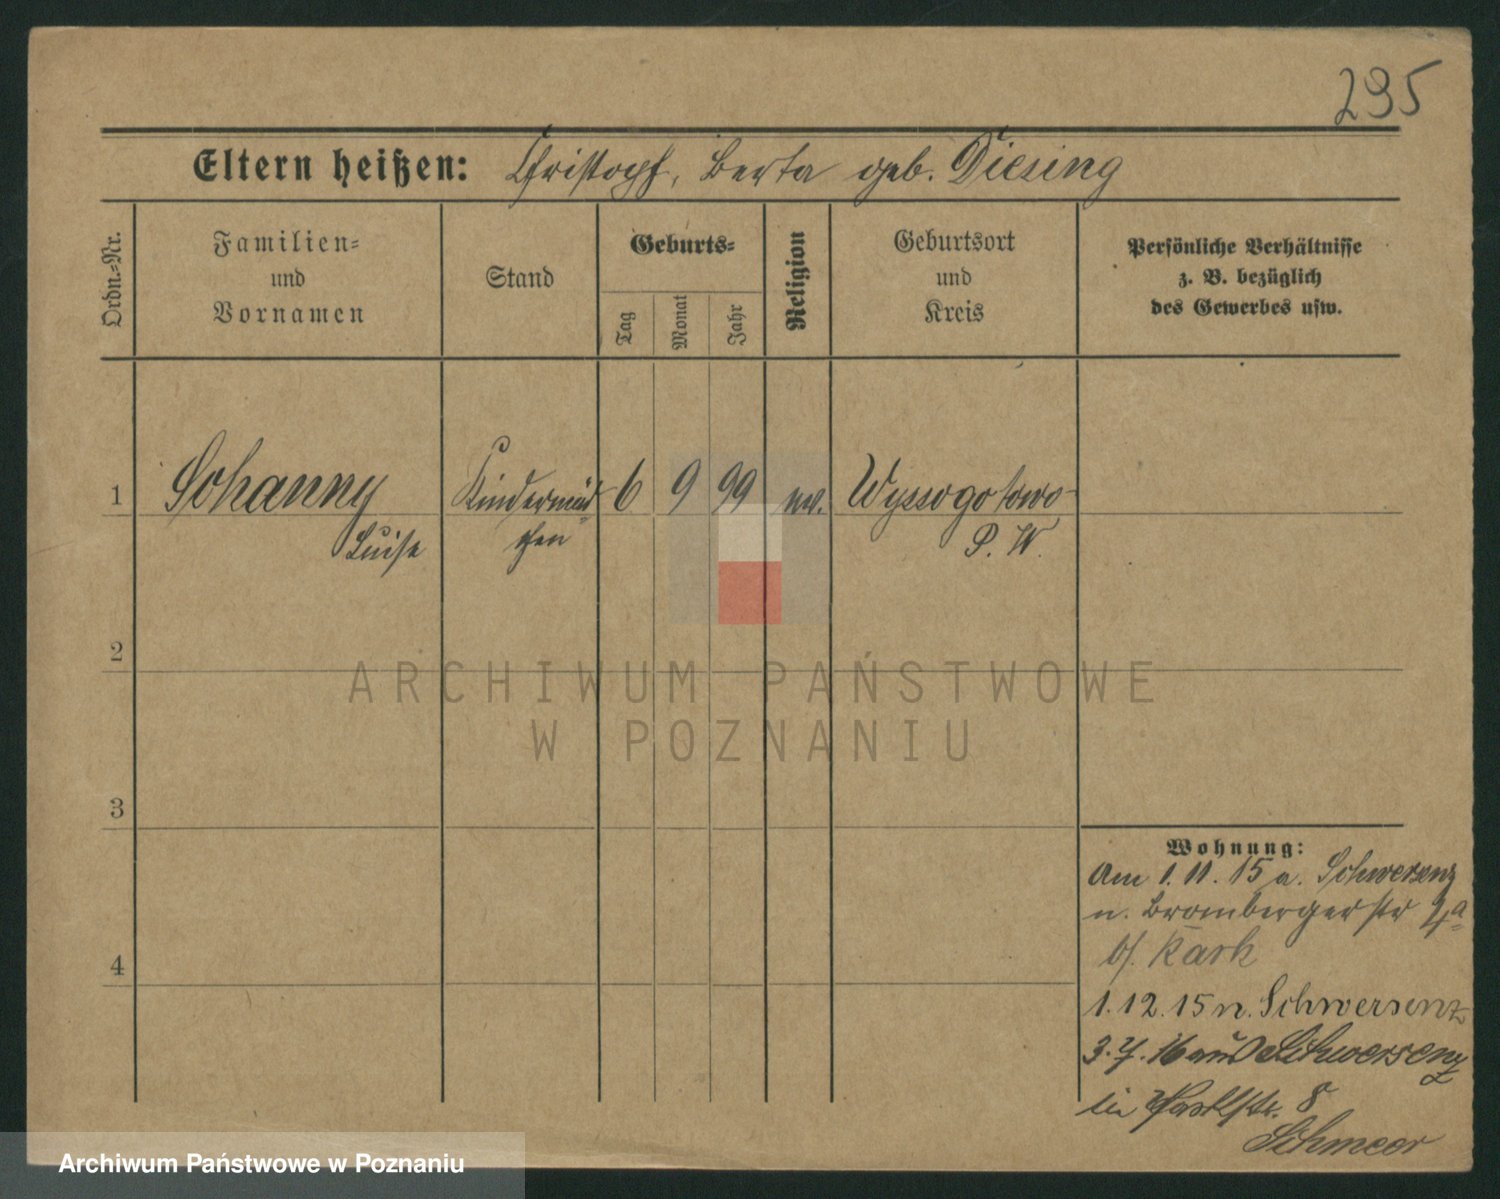 295
Eltern heißen: Christoph, Berta geb. Diesing
Ordn.-Nr.
Familien-
und
Vornamen
Stand
Geburts-
Tag
Monat
Jahr
Religion
Geburtsort
und
Kreis
Persönliche Verhältnisse
z. B. bezüglich
des Gewerbes usw.
1 Johanny Kindermäd- 6 9 99 ev. Wyssogotowo
Luise chen P. W.
2
3
4
Wohnung:
Am 1. 11. 15 a. Schwersenz
n. Brombergerstr 4a
b/ Kark
1. 12. 15 n. Schwersenz
3. 7. 16 aus Schwersenz
in Parkstr. 8
Schmeer
ARCHIWUM PAŃSTWOWE
W POZNANIU
Archiwum Państwowe w Poznaniu